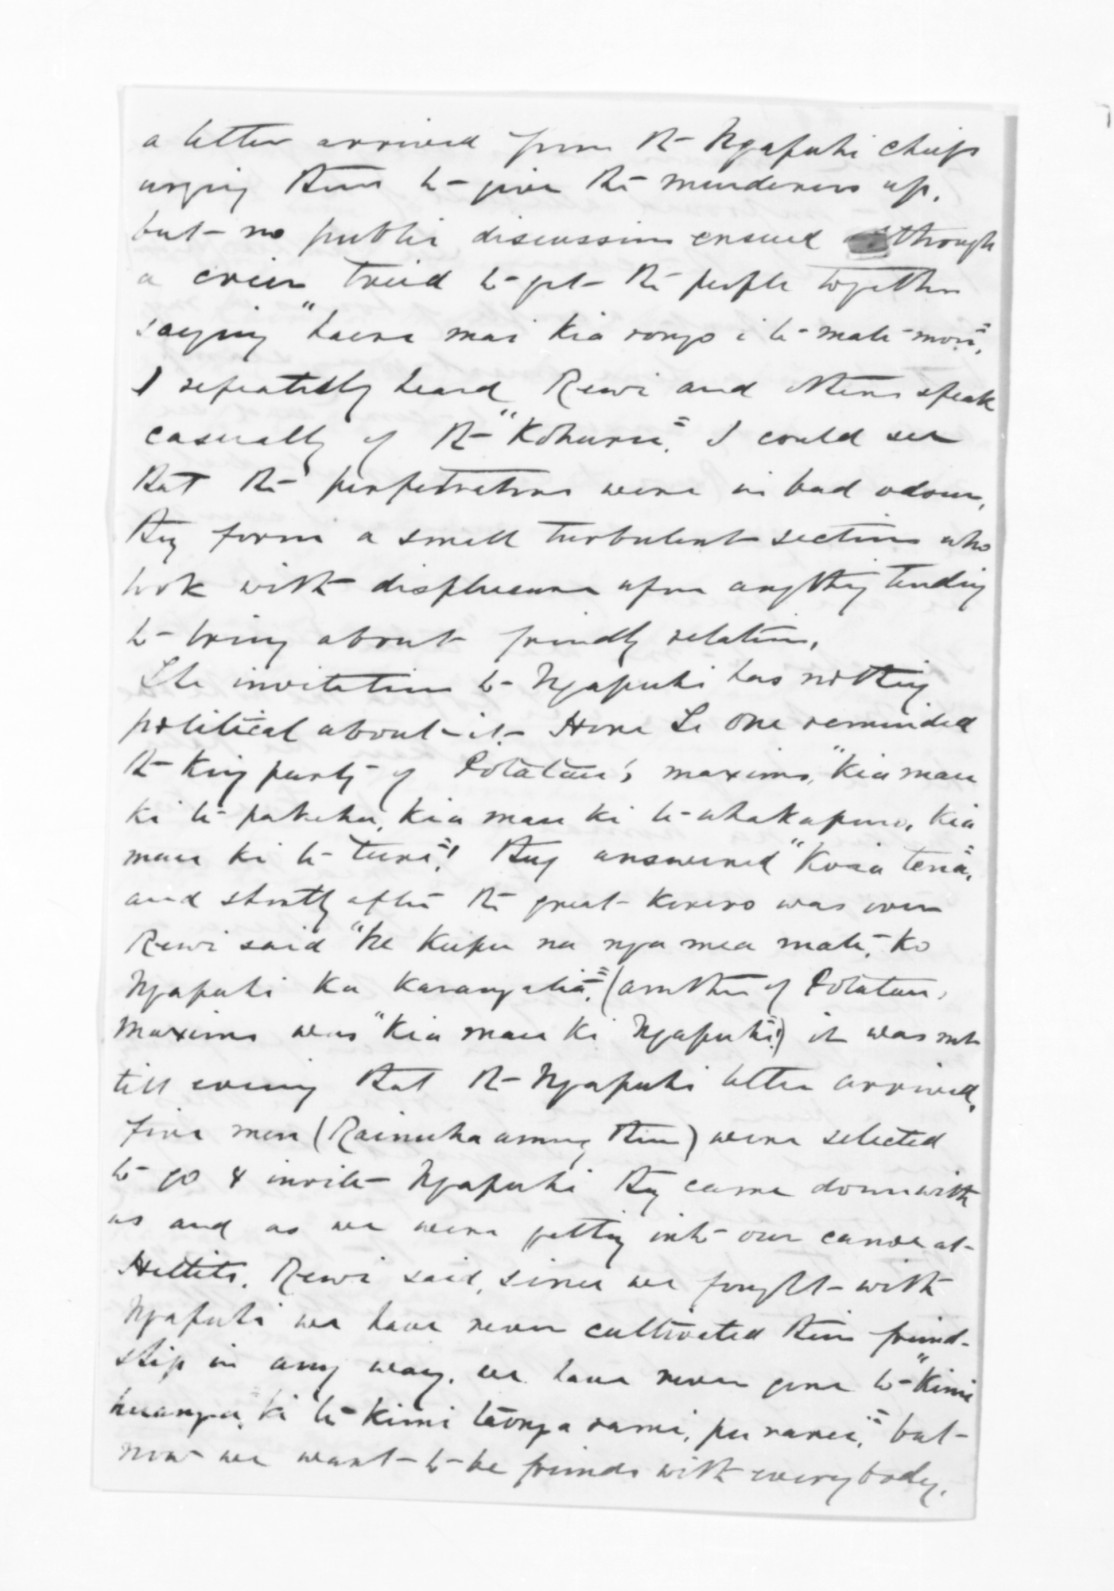 a letter arrived from the Ngapuhi chiefs
urging them to give the murderers up,
but no public discussion ensued although
a crier tried to get the people together
saying "haere mai kia rongo i te mate mou",
I repeatedly heard Rewi and others speak
casually of the "Kohuru". I could see
that the perpetrators were in bad odour,
they form a small turbulent section who
look with displeasure upon anything tending
to bring about friendly relations.
The invitation to Ngapuhi has nothing
political about it Hone Te One reminded
the King party of Potatau's maxims, "Kia mau
ki te pakeha, kia mau ki te whakapono, kia
mau ki te ture"! they answered "Koia tena",
and shortly after the great korero was over
Rewi said "he kupu na nga mea mate, ko
Ngapuhi ka karangatia", (another of Potatau,
maxims was "Kia mau ki Ngapuhi") it was not
till evening that the Ngapuhi letter arrived,
five men (Rainuha among them) were selected
to go & invite Ngapuhi they came down with
us and as we were getting into our canoe at
Hettits, Rewi said, since we fought with
Ngapuhi we have never cultivated their friend-
ship in any way, we have never gone to "Kimi
huanga" ki te kimi taonga rami, pu ranei", but
now we want to be friends with everybody.